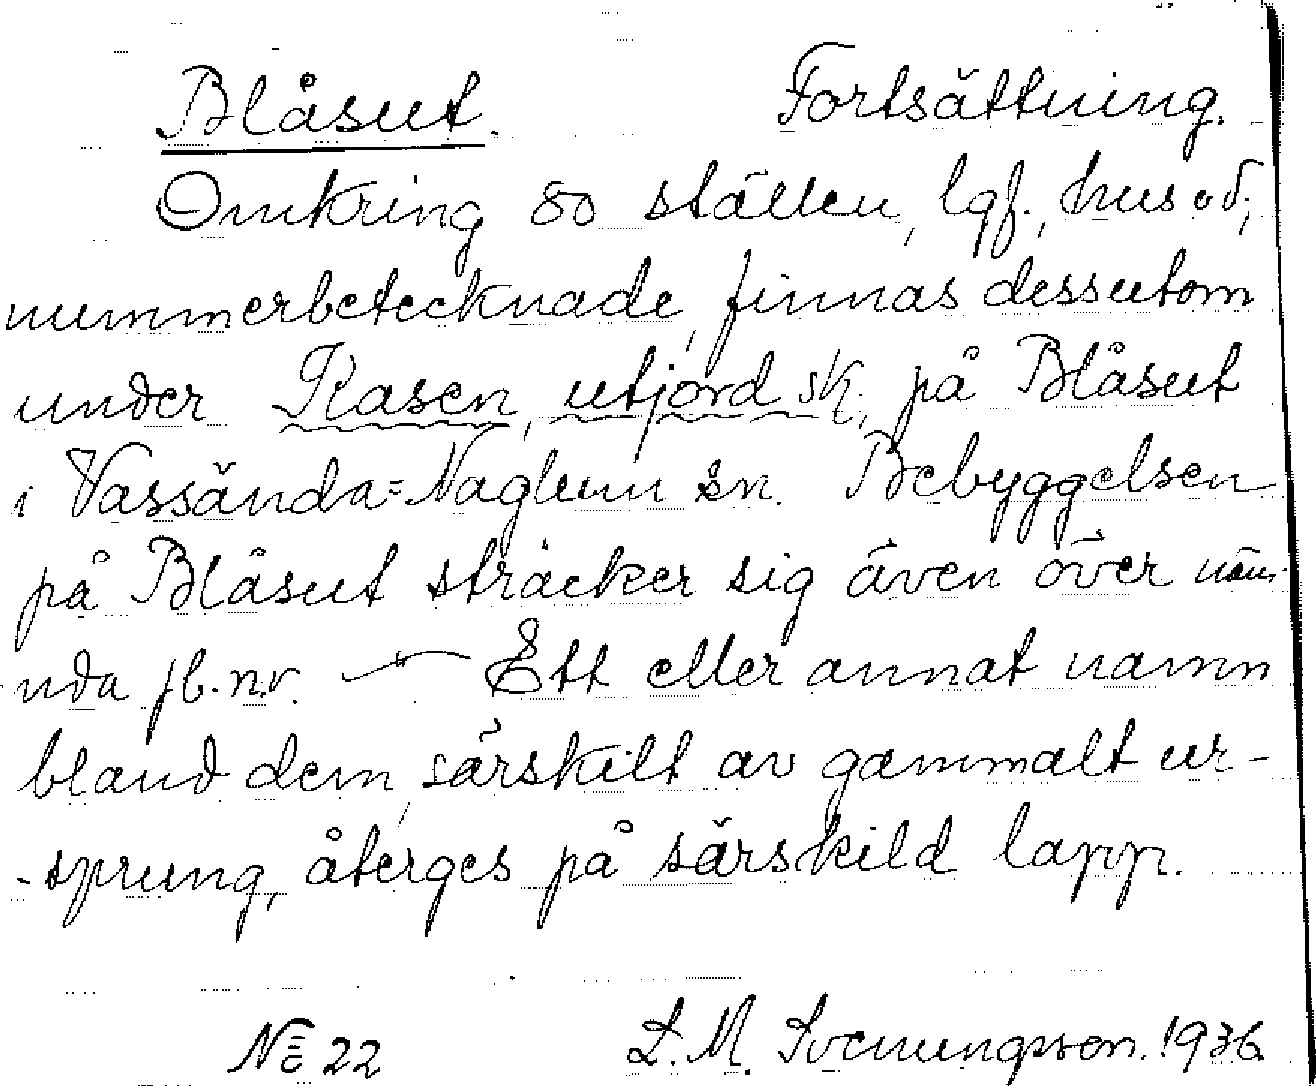 Blåsut. Fortsättning.
Omkring 80 ställen, lgf., hus o d,
nummerbetecknade, finnas dessutom
under Kasen, utjord sk, på Blåsut
i Vassända=Naglum sn. Bebyggelsen
på Blåsut sträcker sig även över näm-
nda fb.nr. — Ett eller annat namn
bland dem, särskilt av gammalt ur-
-sprung, återges på särskild lapp.
No 22 L. M. Svenungsson. 1936